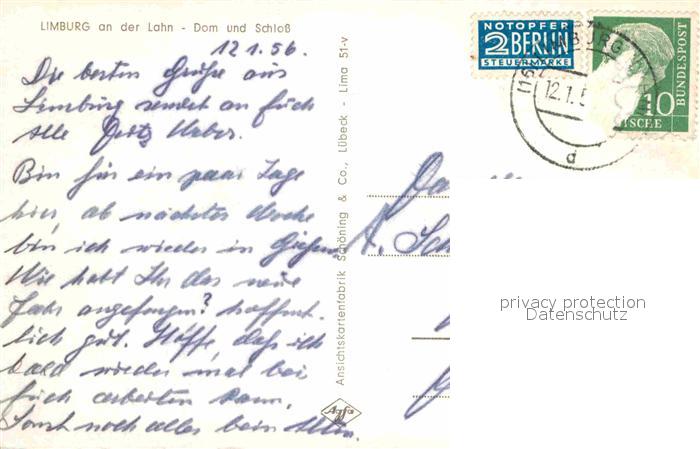 LIMBURG an der Lahn - Dom und Schloß
12.1.56.
Die besten Grüße aus
Limburg sendet an Euch
alle Fritz Weber.
Bin für ein paar Tage
hier, ab nächster Woche
bin ich wieder in Gießen.
Wie habt Ihr das neue
Jahr angefangen? hoffent-
lich gut. Hoffe, daß ich
bald wieder mal bei
Euch arbeiten kann.
Sonst noch alles beim Alten.
Ansichtskartenfabrik Schöning & Co., Lübeck - Lima 51-v
Agfa
NOTOPFER
2 BERLIN
STEUERMARKE
LIMBURG
12.1.5
d
10
BUNDESPOST
TSCHE
A. Sch
privacy protection
Datenschutz